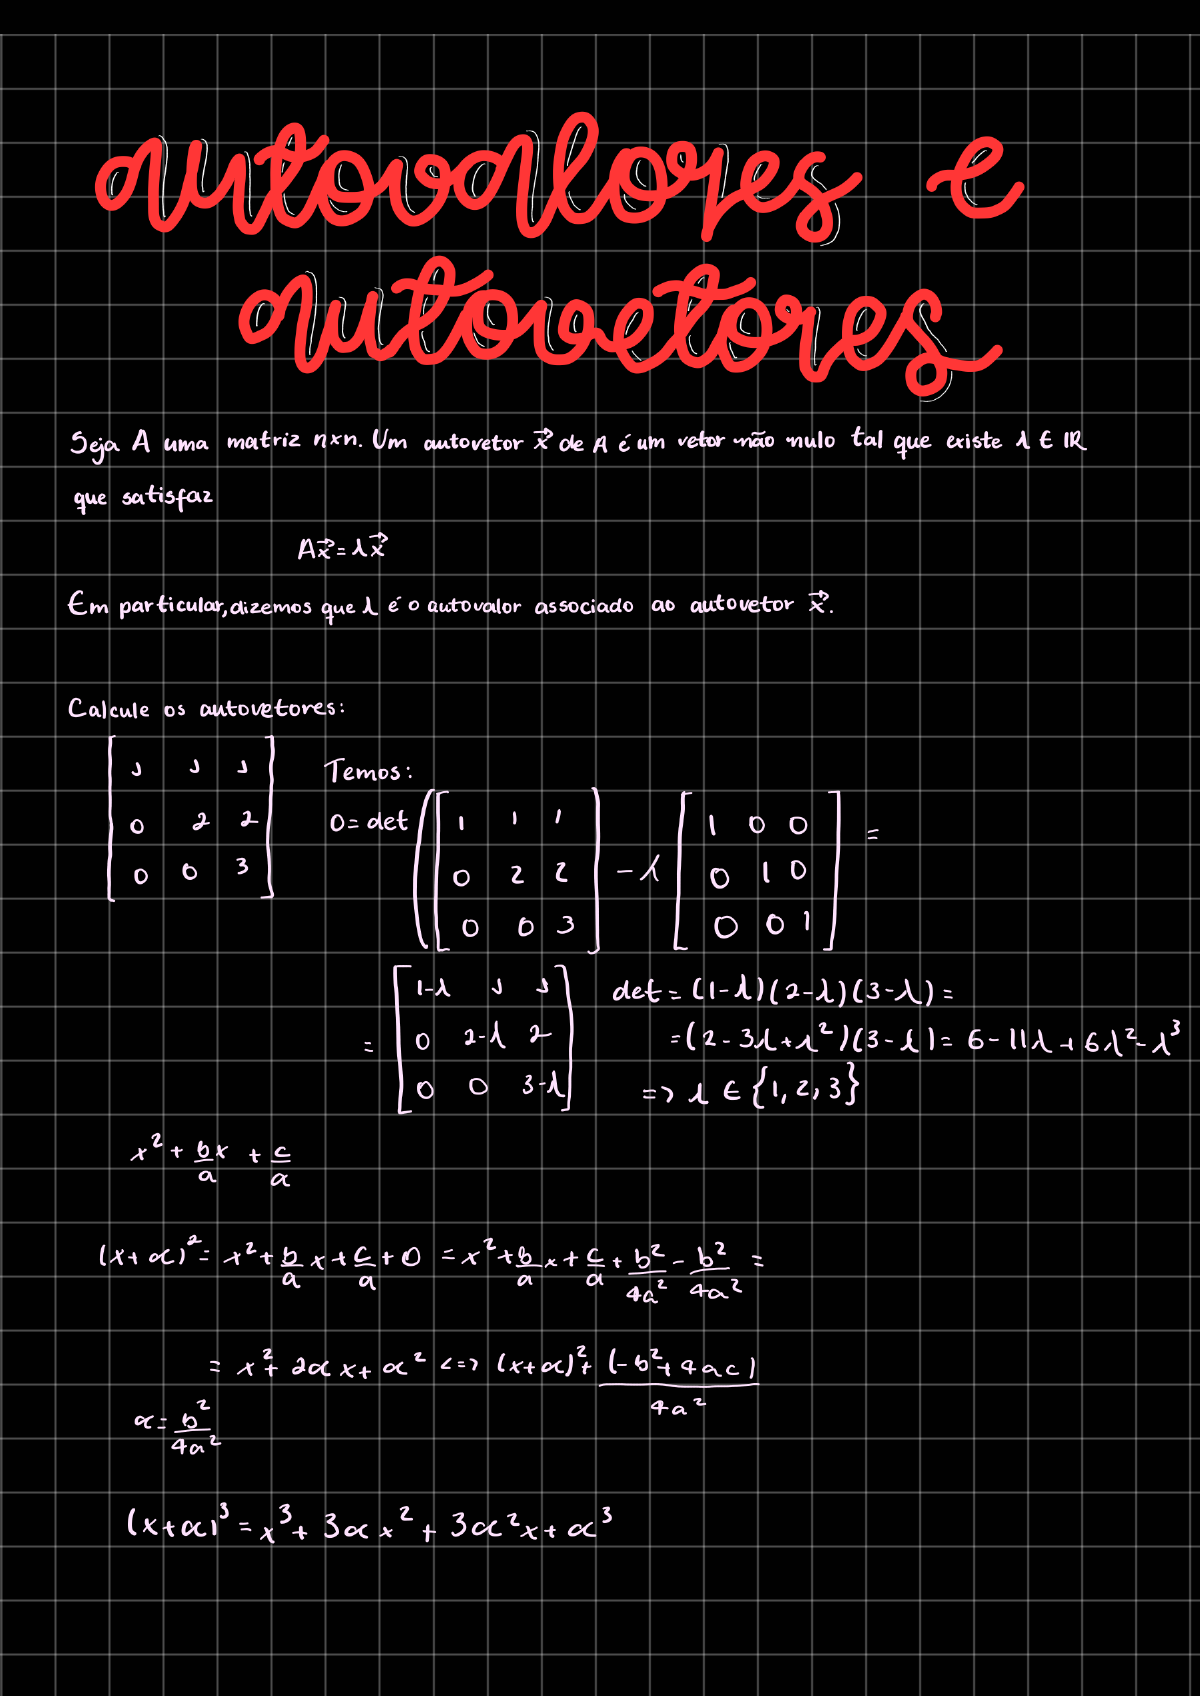 autovalores e
autovetores
Seja A uma matriz n×n. Um autovetor x⃗ de A é um vetor não nulo tal que existe λ ∈ IR
que satisfaz
Ax⃗ = λx⃗
Em particular, dizemos que λ é o autovalor associado ao autovetor x⃗.
Calcule os autovetores:
[1 1 1
0 2 2
0 0 3]
Temos:
0 = det ([1 1 1
0 2 2
0 0 3] - λ [1 0 0
0 1 0
0 0 1] =
= [1-λ 1 1
0 2-λ 2
0 0 3-λ]
det = (1-λ)(2-λ)(3-λ) =
= (2-3λ+λ²)(3-λ) = 6-11λ+6λ²-λ³
=> λ ∈ {1, 2, 3}
x² + bx/a + c/a
(x+α)² = x² + b/a x + c/a + 0 = x² + b/a x + c/a + b²/4a² - b²/4a² =
= x² + 2αx + α² <=> (x+α)² + (-b²+4ac)/4a²
α = b²/4a²
(x+α)³ = x³ + 3αx² + 3α²x + α³